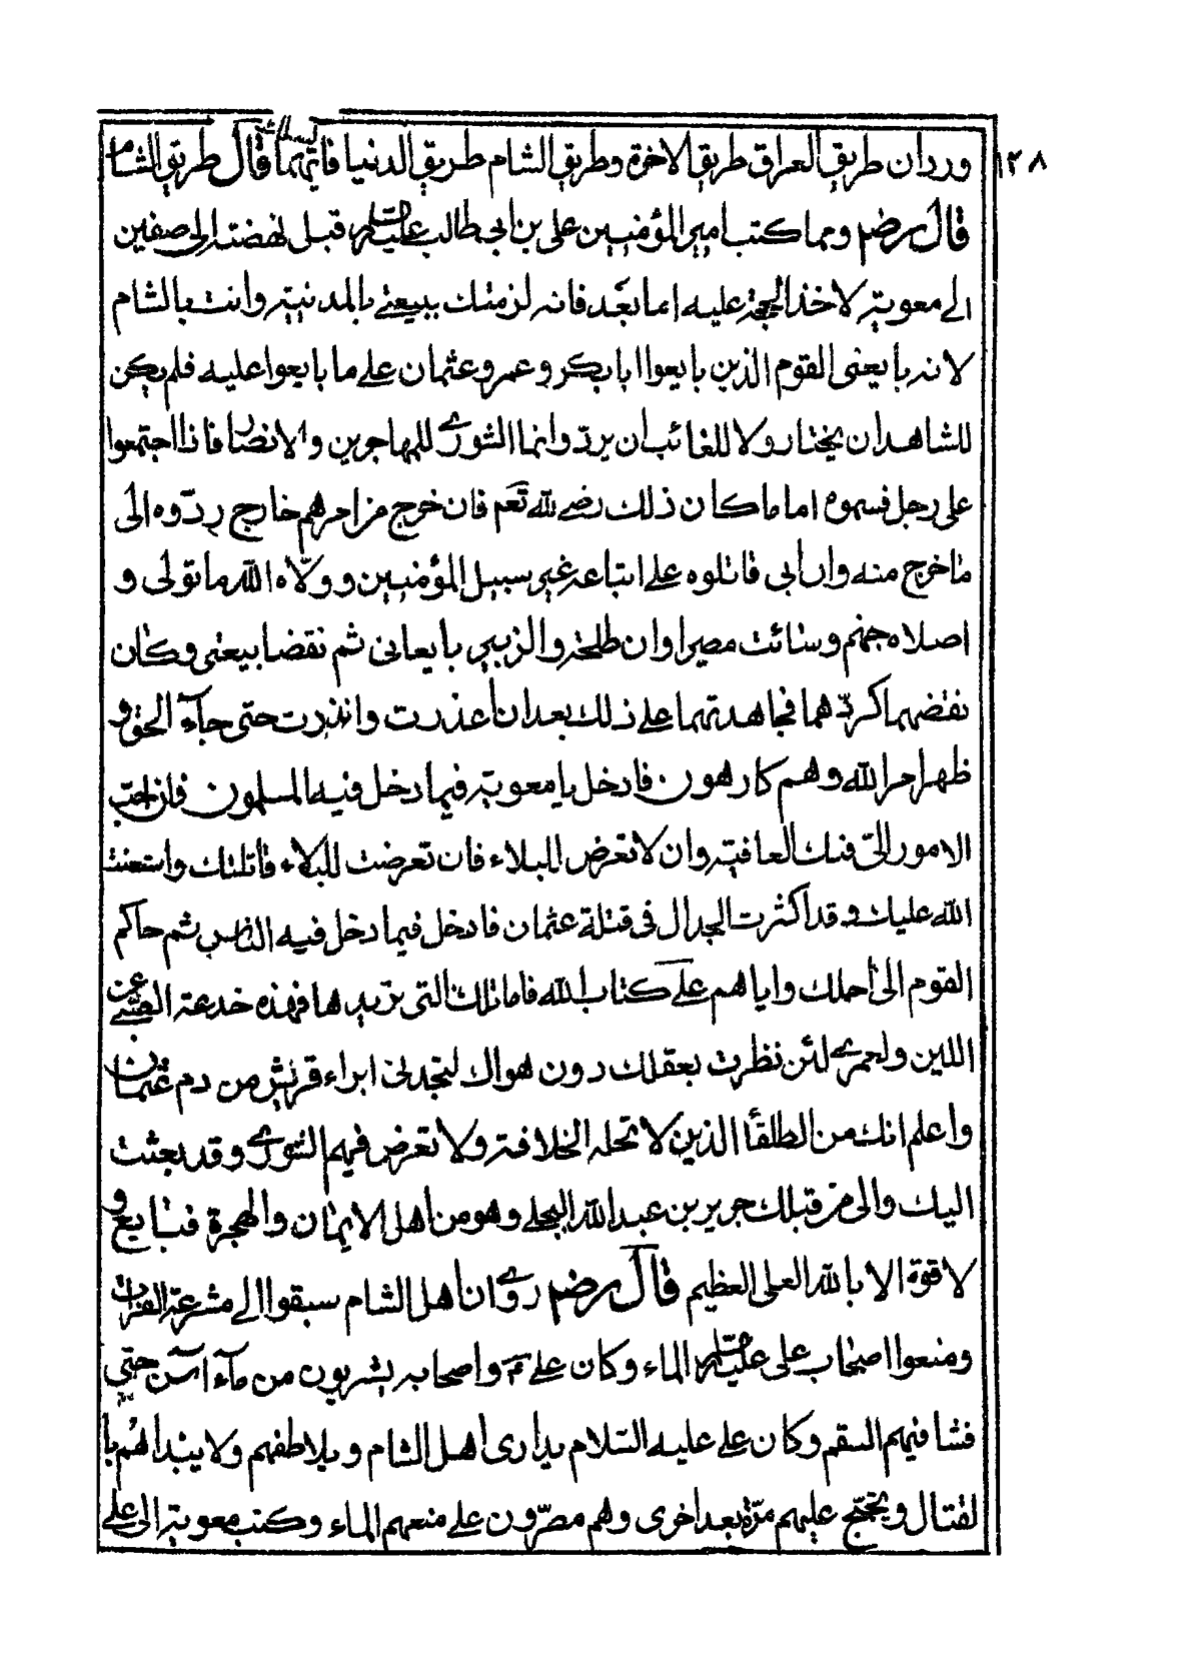 ١٢٨
وردان طريق العراق طريق الاخرة وطريق الشام طريق الدنيا فايهما قال طريق الشام
قال رضه ومما كتب امير المؤمنين على بن ابى طالب عليه السلم قبل نهضته الى صفين
الى معوية لاخذ الحجة عليه اما بعد فانه لزمتك بيعتى بالمدنية وانت بالشام
لانه بايعنى القوم الذين بايعوا ابابكر وعمر وعثمان على ما بايعوا عليه فلم يكن
للشاهد ان يختار ولا للغائب ان يردّ وانما الشورى للمهاجرين والانصار فاذا اجتمعوا
على رجل فسموه اماما كان ذلك رضى لله تعم فان خرج من امرهم خارج ردّوه الى
ما خرج منه وان ابى قاتلوه على اتباعه غير سبيل المؤمنين وولّاه الله ما تولى و
اصلاه جهنم وسائت مصيرا وان طلحة والزبير بايعانى ثم نقضا بيعتى وكان
نقضهما كردّهما فجاهدتهما على ذلك بعد ان اعذرت وانذرت حتى جآء الحق و
ظهر امر الله وهم كارهون فادخل يا معوية فيما دخل فيه المسلمون فان احب
الامور الىّ فيك العافية وان لا تعرض للبلاء فان تعرضت للبلاء قاتلتك واستعنت
الله عليك وقد اكثرت الجدال فى قتلة عثمان فادخل فيما دخل فيه الناس ثم حاكم
القوم الىّ احملك واياهم على كتاب الله فاما تلك التى تريدها فهذه خدعة الصبى عن
اللبن ولعمرى لئن نظرت بعقلك دون هواك لتجدنى ابراء قريش من دم عثمان
واعلم انك من الطلقآ الذين لا تحله الخلافة ولا تعرض فيهم الشورى وقد بعثت
اليك والى من قبلك جرير بن عبد الله البجلى وهو من اهل الايمان والهجرة فبايع و
لا قوة الا بالله العلى العظيم قال رضه روى ان اهل الشام سبقوا الى مشرعة الفرات
ومنعوا اصحاب على عليه السلم الماء وكان على ع واصحابه يشربون من مآء آسن حتى
فشا فيهم السقم وكان على عليه السّلام يدارى اهل الشام ويلاطفهم ولا يبداهم با
لقتال ويحتجّ عليهم مرّة بعد اخرى وهم مصرّون على منعهم الماء وكتب معوية الى على